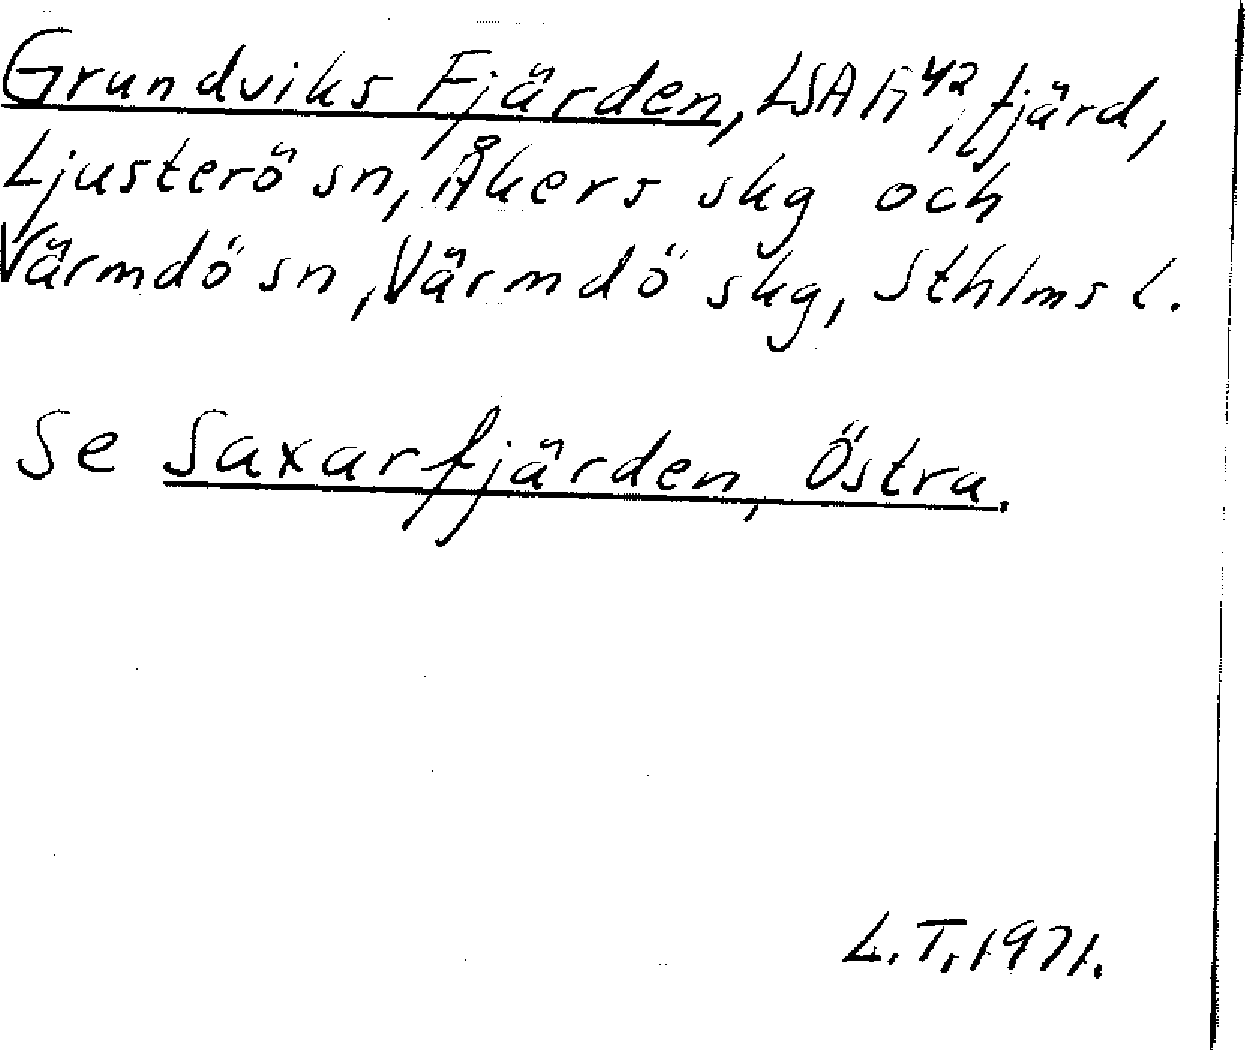 Grundviks Fjärden, LSA A⁴², fjärd,
Ljusterö sn, Åkers skg och
Värmdö sn, Värmdö skg, Sthlms l.
Se Saxarfjärden, Östra.
L.T. 1971.